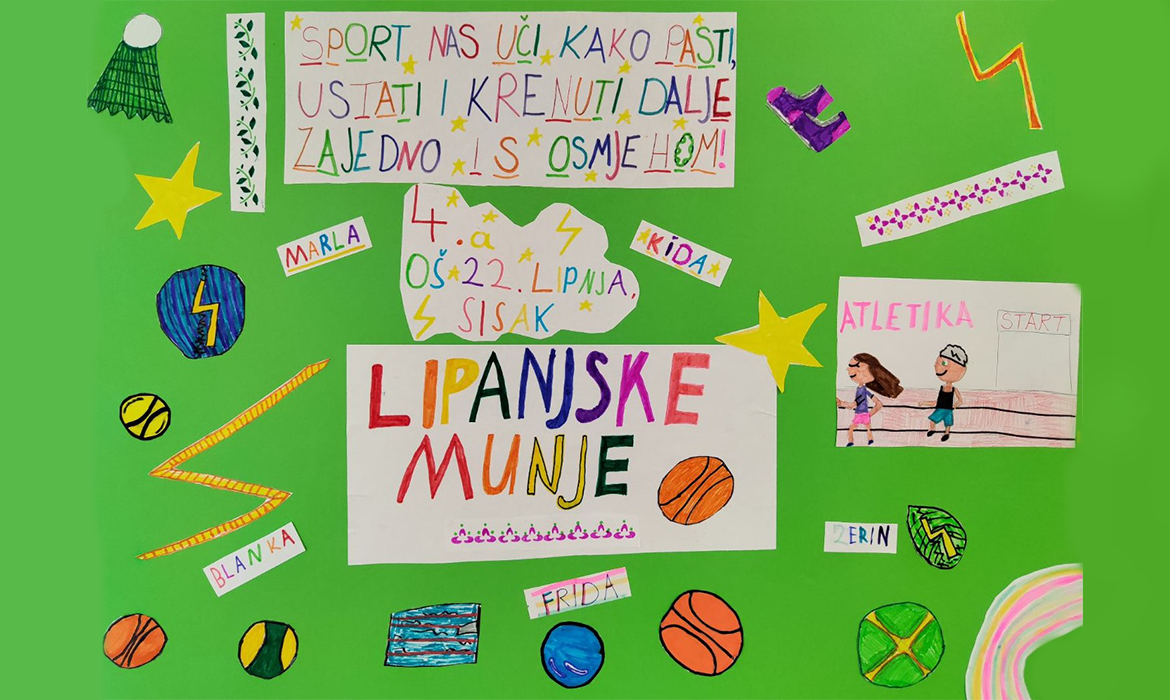 SPORT NAS UČI KAKO PASTI,
USTATI I KRENUTI DALJE
ZAJEDNO I S OSMJEHOM!
4.a
OŠ 22. LIPNJA,
SISAK
MARLA
KIDA
ATLETIKA
START
LIPANJSKE
MUNJE
BLANKA
ZERIN
FRIDA